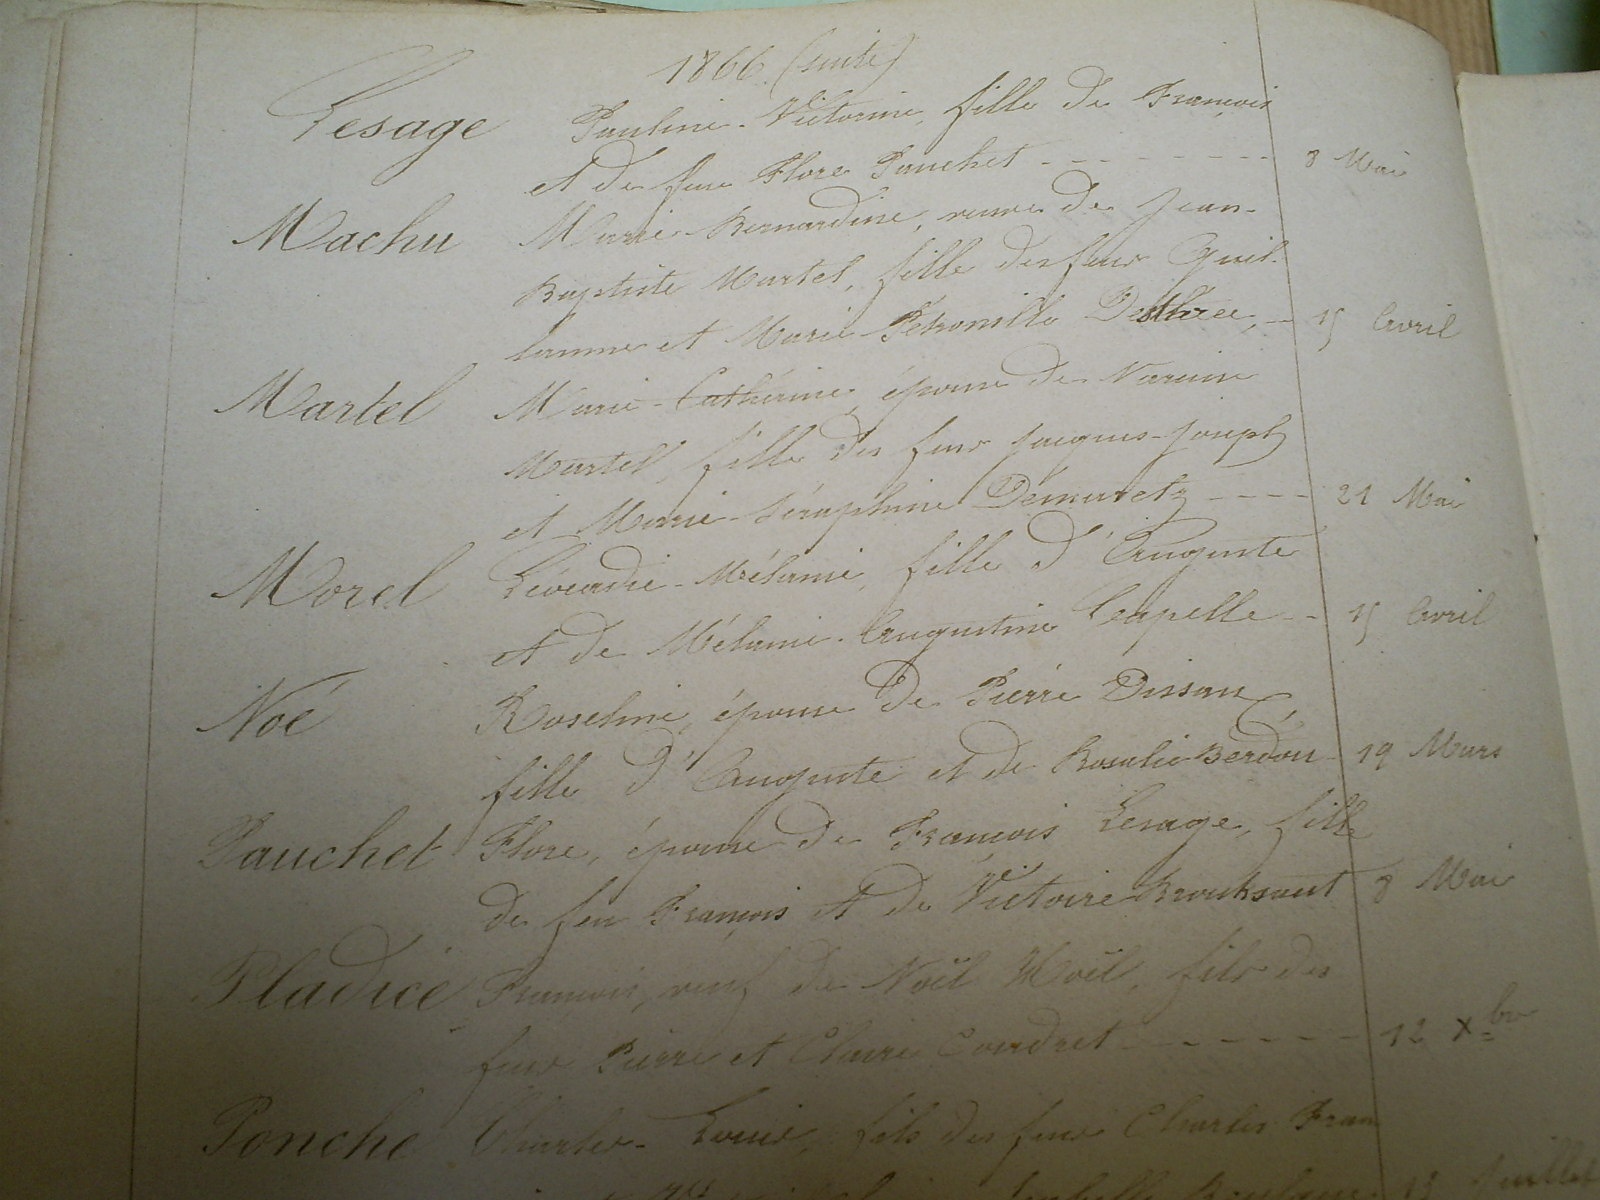 1866. (suite)
Lesage Pauline-Victorine, fille de François
et de feue Flore Pauchet - - - - - - - - - 8 Mai
Machu Marie-Bernardine, veuve de Jean-
Baptiste Martel, fille des feus Guil-
laume et Marie-Petronille Desthrée, - 15 Avril
Martel Marie-Catherine, épouse de Narcisse
Martel, fille des feus Jacques-Joseph
et Marie-Séraphine Démaretz - - - - 21 Mai
Morel Léocadie-Mélanie, fille d'Auguste
et de Mélanie-Augustine Capelle - - 15 Avril
Noé Roseline, épouse de Pierre Dissaux,
fille d'Auguste et de Rosalie Berdou - 19 Mars
Pauchet Flore, épouse de François Lesage, fille
de feu François et de Victoire 8 Mai
Pladicé François, veuf de Noël fils des
feus Pierre et Claire Coudret - - - - - - - 12 Xbre
Ponche Charles-Louis, fils des feus Charles Fran
Juillet